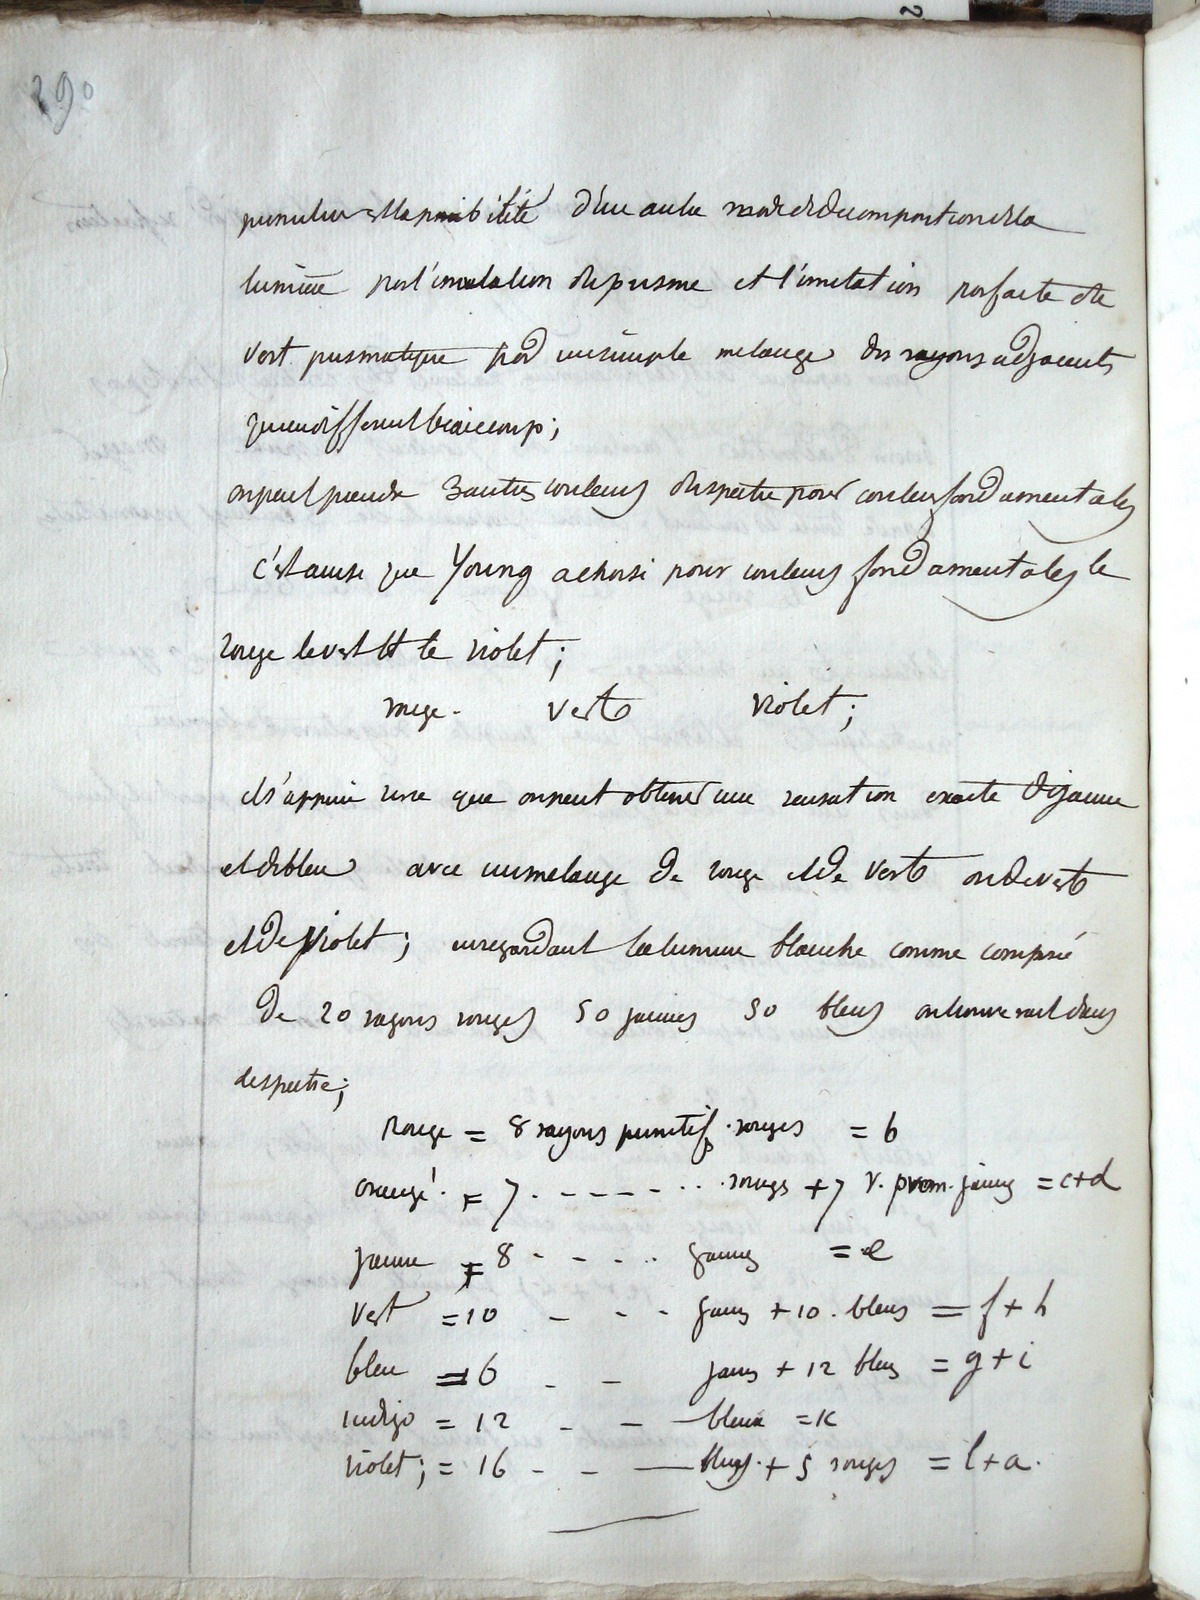 290
possibilité d'une autre mode de decomposition de la
lumière par l'interposition du prisme et l'imitation parfaite de
vert prismatique par un simple melange des rayons adjacents
qui en different beaucoup;
on peut prendre 3 autres couleurs du spectre pour couleurs fondamentales
c'est ainsi que Young a choisi pour couleurs fondamentales le
rouge le vert et le violet;
rouge. vert violet;
il s'appuie sur ce que on peut obtenir une sensation exacte de jaune
et de bleu avec un melange de rouge et de vert ou de vert
et de violet; en regardant la lumiere blanche comme composé
de 20 rayons rouges 30 jaunes 50 bleus on trouverait dans
le spectre;
Rouge = 8 rayons primitifs rouges = b
orangé. = 7. - - - - - . . . rouges + 7 r. prim. jaunes = c+d
jaune = 8 - - - . . jaunes = e
vert = 10 - - - jaunes + 10. bleus = f + h
bleu = 6 - - jaunes + 12 bleus = g + i
indigo = 12 - - bleus = K
violet; = 16 - - bleus. + 5 rouges = l+a.